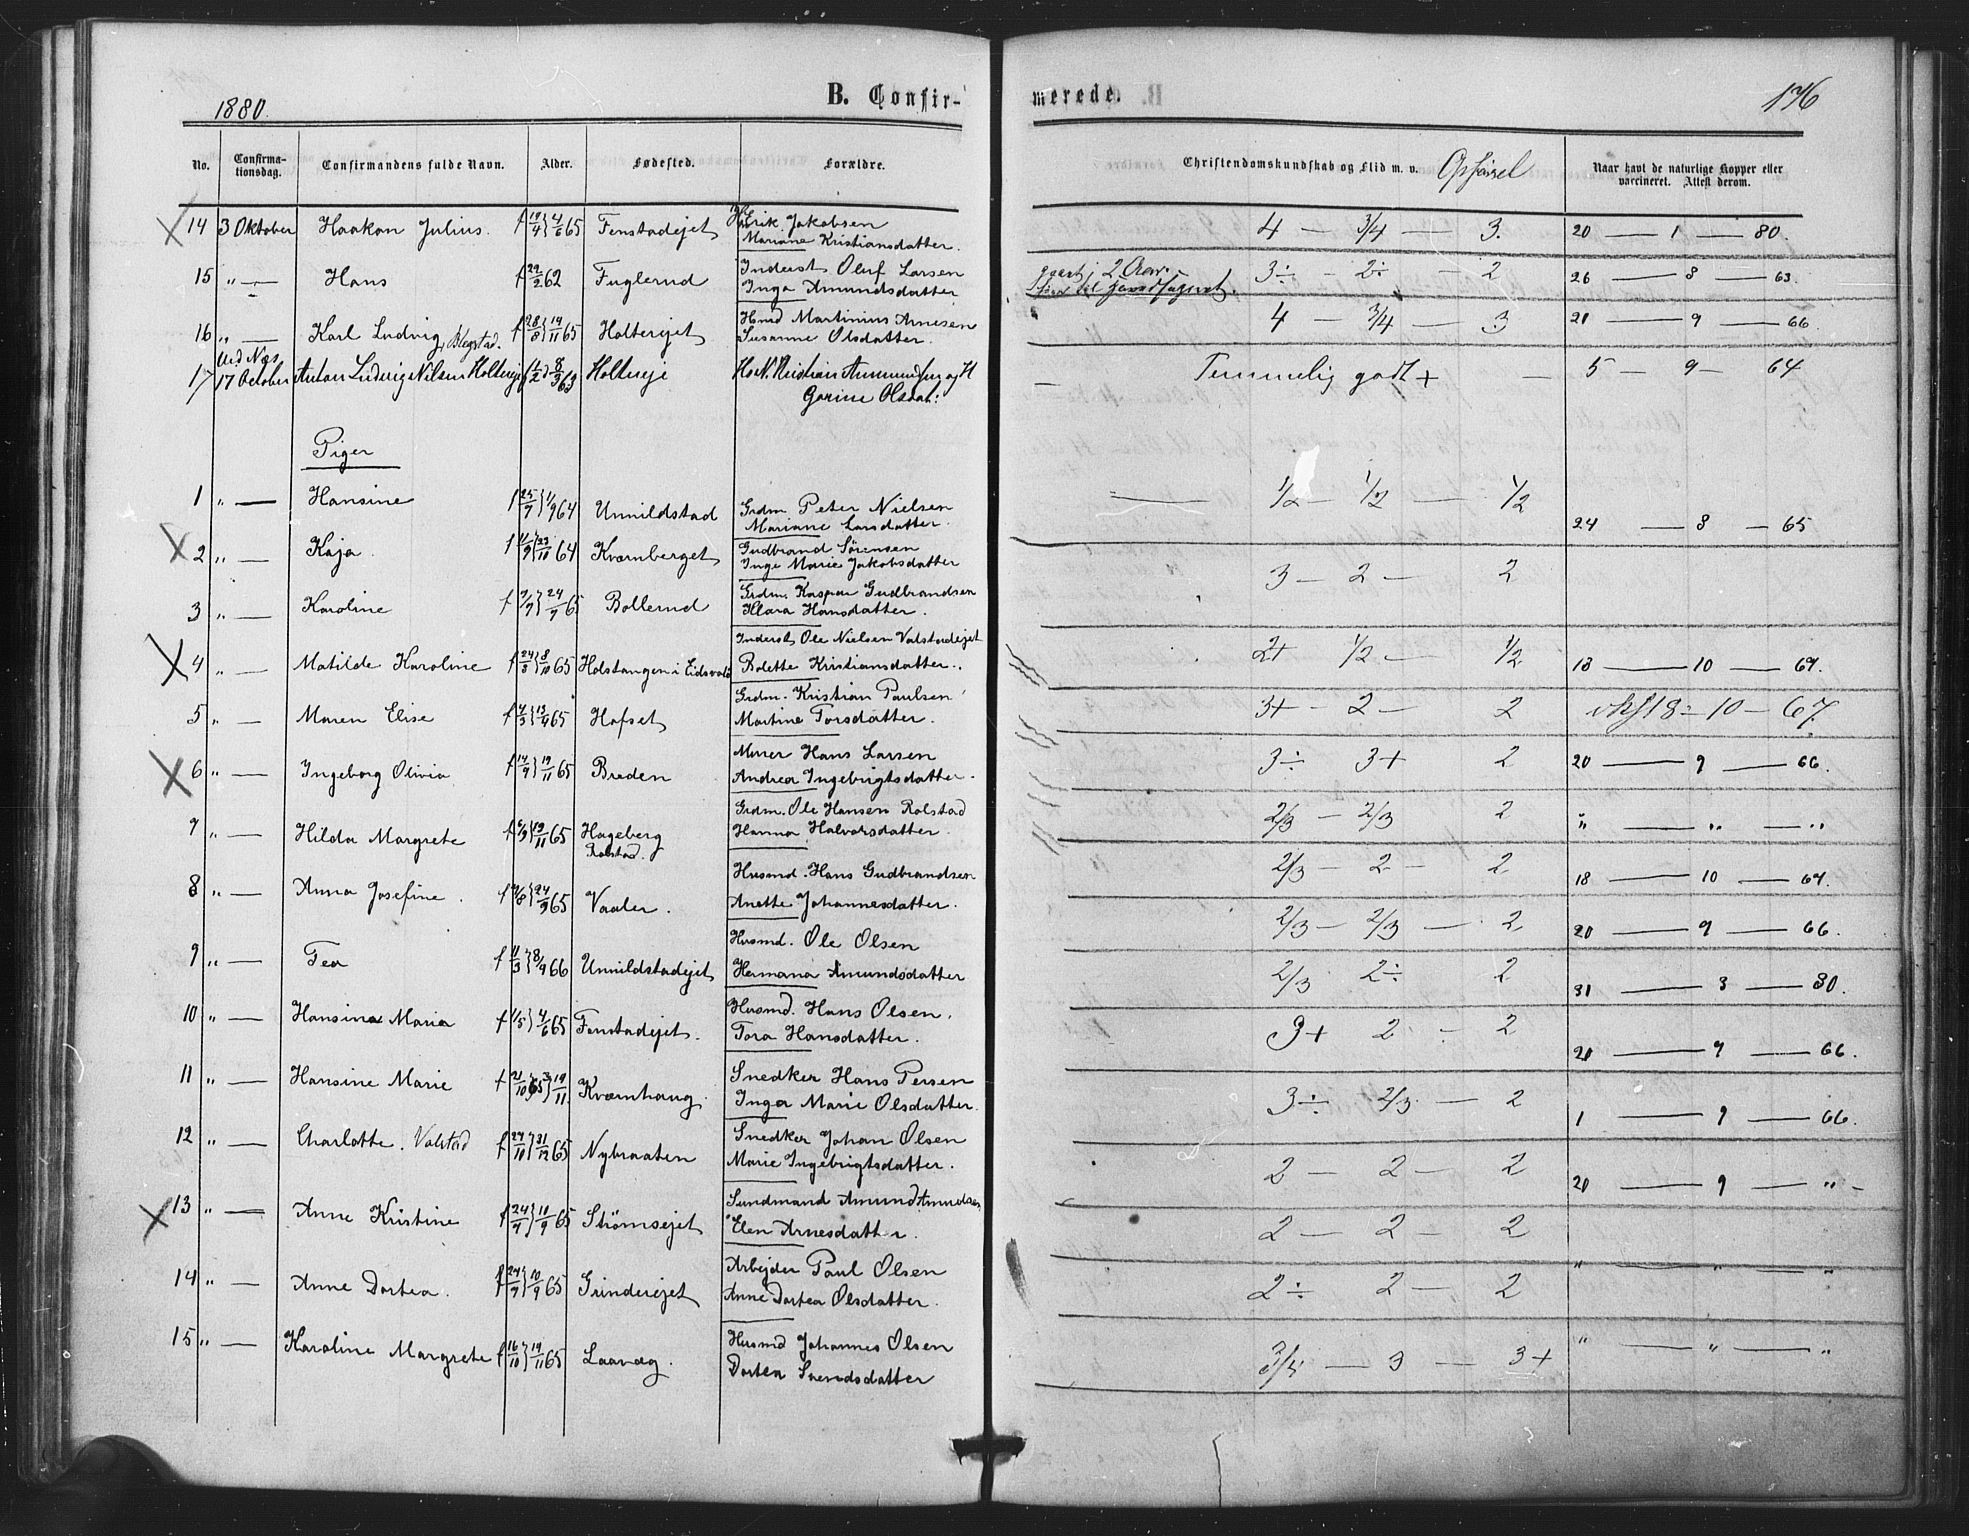 1880.
B. Confir-
merede.
176
No. Confirma-tionsdag. Confirmandens fulde Navn. Alder. Fødested. Forældre. Christendomskundskab og Flid m. v. Opførsel Naar havt de naturlige Kopper eller vaccineret. Attest derom.
14 3 Oktober Haakon Julius. f 19/4 } 4/6 65 Fenstadejet Erik Jakobsen
Mariane Kristiansdatter. 4 — 3/4 — 3. 20 — 1 — 80.
15 „ — Hans f 22/2 62 Fuglerud Inderst Oluf Larsen
Inga Amundsdatter 2 Aar. 3÷ - 2÷ - 2 26 — 8 — 63.
16 „ — Karl Ludvig, Blegstad. f 28/8 } 19/11 65 Holterejet Husmd Martinius Arnesen
Susanne Olsdatter. 4 — 3/4 — 3 21 — 9 — 66.
ved Næs
17 17 October Anton Ludvig Nilsen Holtereje f 1/2 } 8/3 63 Holtereje Kristian Amundsen og H
Gorine Olsdat: — Temmelig godt + — 5 — 9 — 64
Piger
1 „ — Hansine f 25/7 } 1/9 64 Unnildstad Grdm. Peter Nielsen
Mariane Larsdatter. — 1/2 — 1/2 — 1/2 24 — 8 — 65
2 „ — Kaja. f 11/9 } 23/10 64 Kværnberget Gudbrand Sørensen
Inge Marie Jakobsdatter 3 — 2 — 2
3 „ — Karoline f 7/7 } 24/9 65 Bollerud Grdm. Kaspar Gudbrandsen
Klara Hansdatter.
4 „ — Matilde Karoline f 24/3 } 8/10 65 Holstangen i Eidsvold Inderst Ole Nielsen Valstadejet
Bolette Kristiansdatter. 2+ 1/2 — 1/2 18 — 10 — 67.
5 „ — Maren Elise f 4/3 } 13/4 65 Hofset Grdm. Kristian Paulsen
Martine Torsdatter. 3+ — 2 — 2 18 - 10 — 67.
6 „ — Ingeborg Olivia f 14/9 } 19/11 65 Breden Murer Hans Larsen
Andrea Ingebrigtsdatter. 3÷ 3+ 2 20 — 9 — 66.
7 „ — Hilda Margrete f 6/9 } 19/11 65 Hageberg
Rolstad. Grdm. Ole Hansen Rolstad
Hanna Halvorsdatter. 2/3 — 2/3 2 „ — „ — „
8 „ — Anna Josefine. 24/9 65 Vaaler. Husmd. Hans Gudbrandsen
Anette Johannesdatter. 2/3 — 2 — 2 18 — 10 — 67.
9 „ — Tea f 11/3 } 8/9 66 Unnildstadejet Husmd. Ole Olsen
Hermana Amundsdatter 2/3 — 2/3 — 2 20 — 9 — 66.
10 „ — Hansina Maria f 1/5 } 4/6 65 Fenstadejet. Husmd. Hans Olsen.
Tora Hansdatter. 2/3 2÷ 2 31 — 3 — 80.
11 „ — Hansine Marie f 21/10 65 } 19/11 Kværnhaug. Snedker Hans Persen
Inga Marie Olsdatter. 3+ 2 — 2 20 — 9 — 66.
12 „ — Charlotte. Valstad f 27/10 } 31/12 65 Nybraaten Snedker Johan Olsen
Marie Ingebrigtsdatter. 3÷ 2/3 — 2 1 — 9 — 66.
13 „ — Anne Kristine f 24/7 } 11/9 65 Strømsejet Sundmand Amund Amundsen
Elen Arnesdatter. 2 — 2 — 2 20 — 9 — „ -
14 „ — Anne Dortea. f 24/7 } 10/9 65 Grinderejet Arbejder Paul Olsen
Anne Dortea Olsdatter. 2 — 2 — 2 „ — „ — „
15 „ — Karoline Margrete f 16/10 } 19/11 65 Laaveg. Husmd Johannes Olsen
Dortea Svendsdatter 2÷ 2 — 2 „ — „ — „
3/4 — 3 — 3+